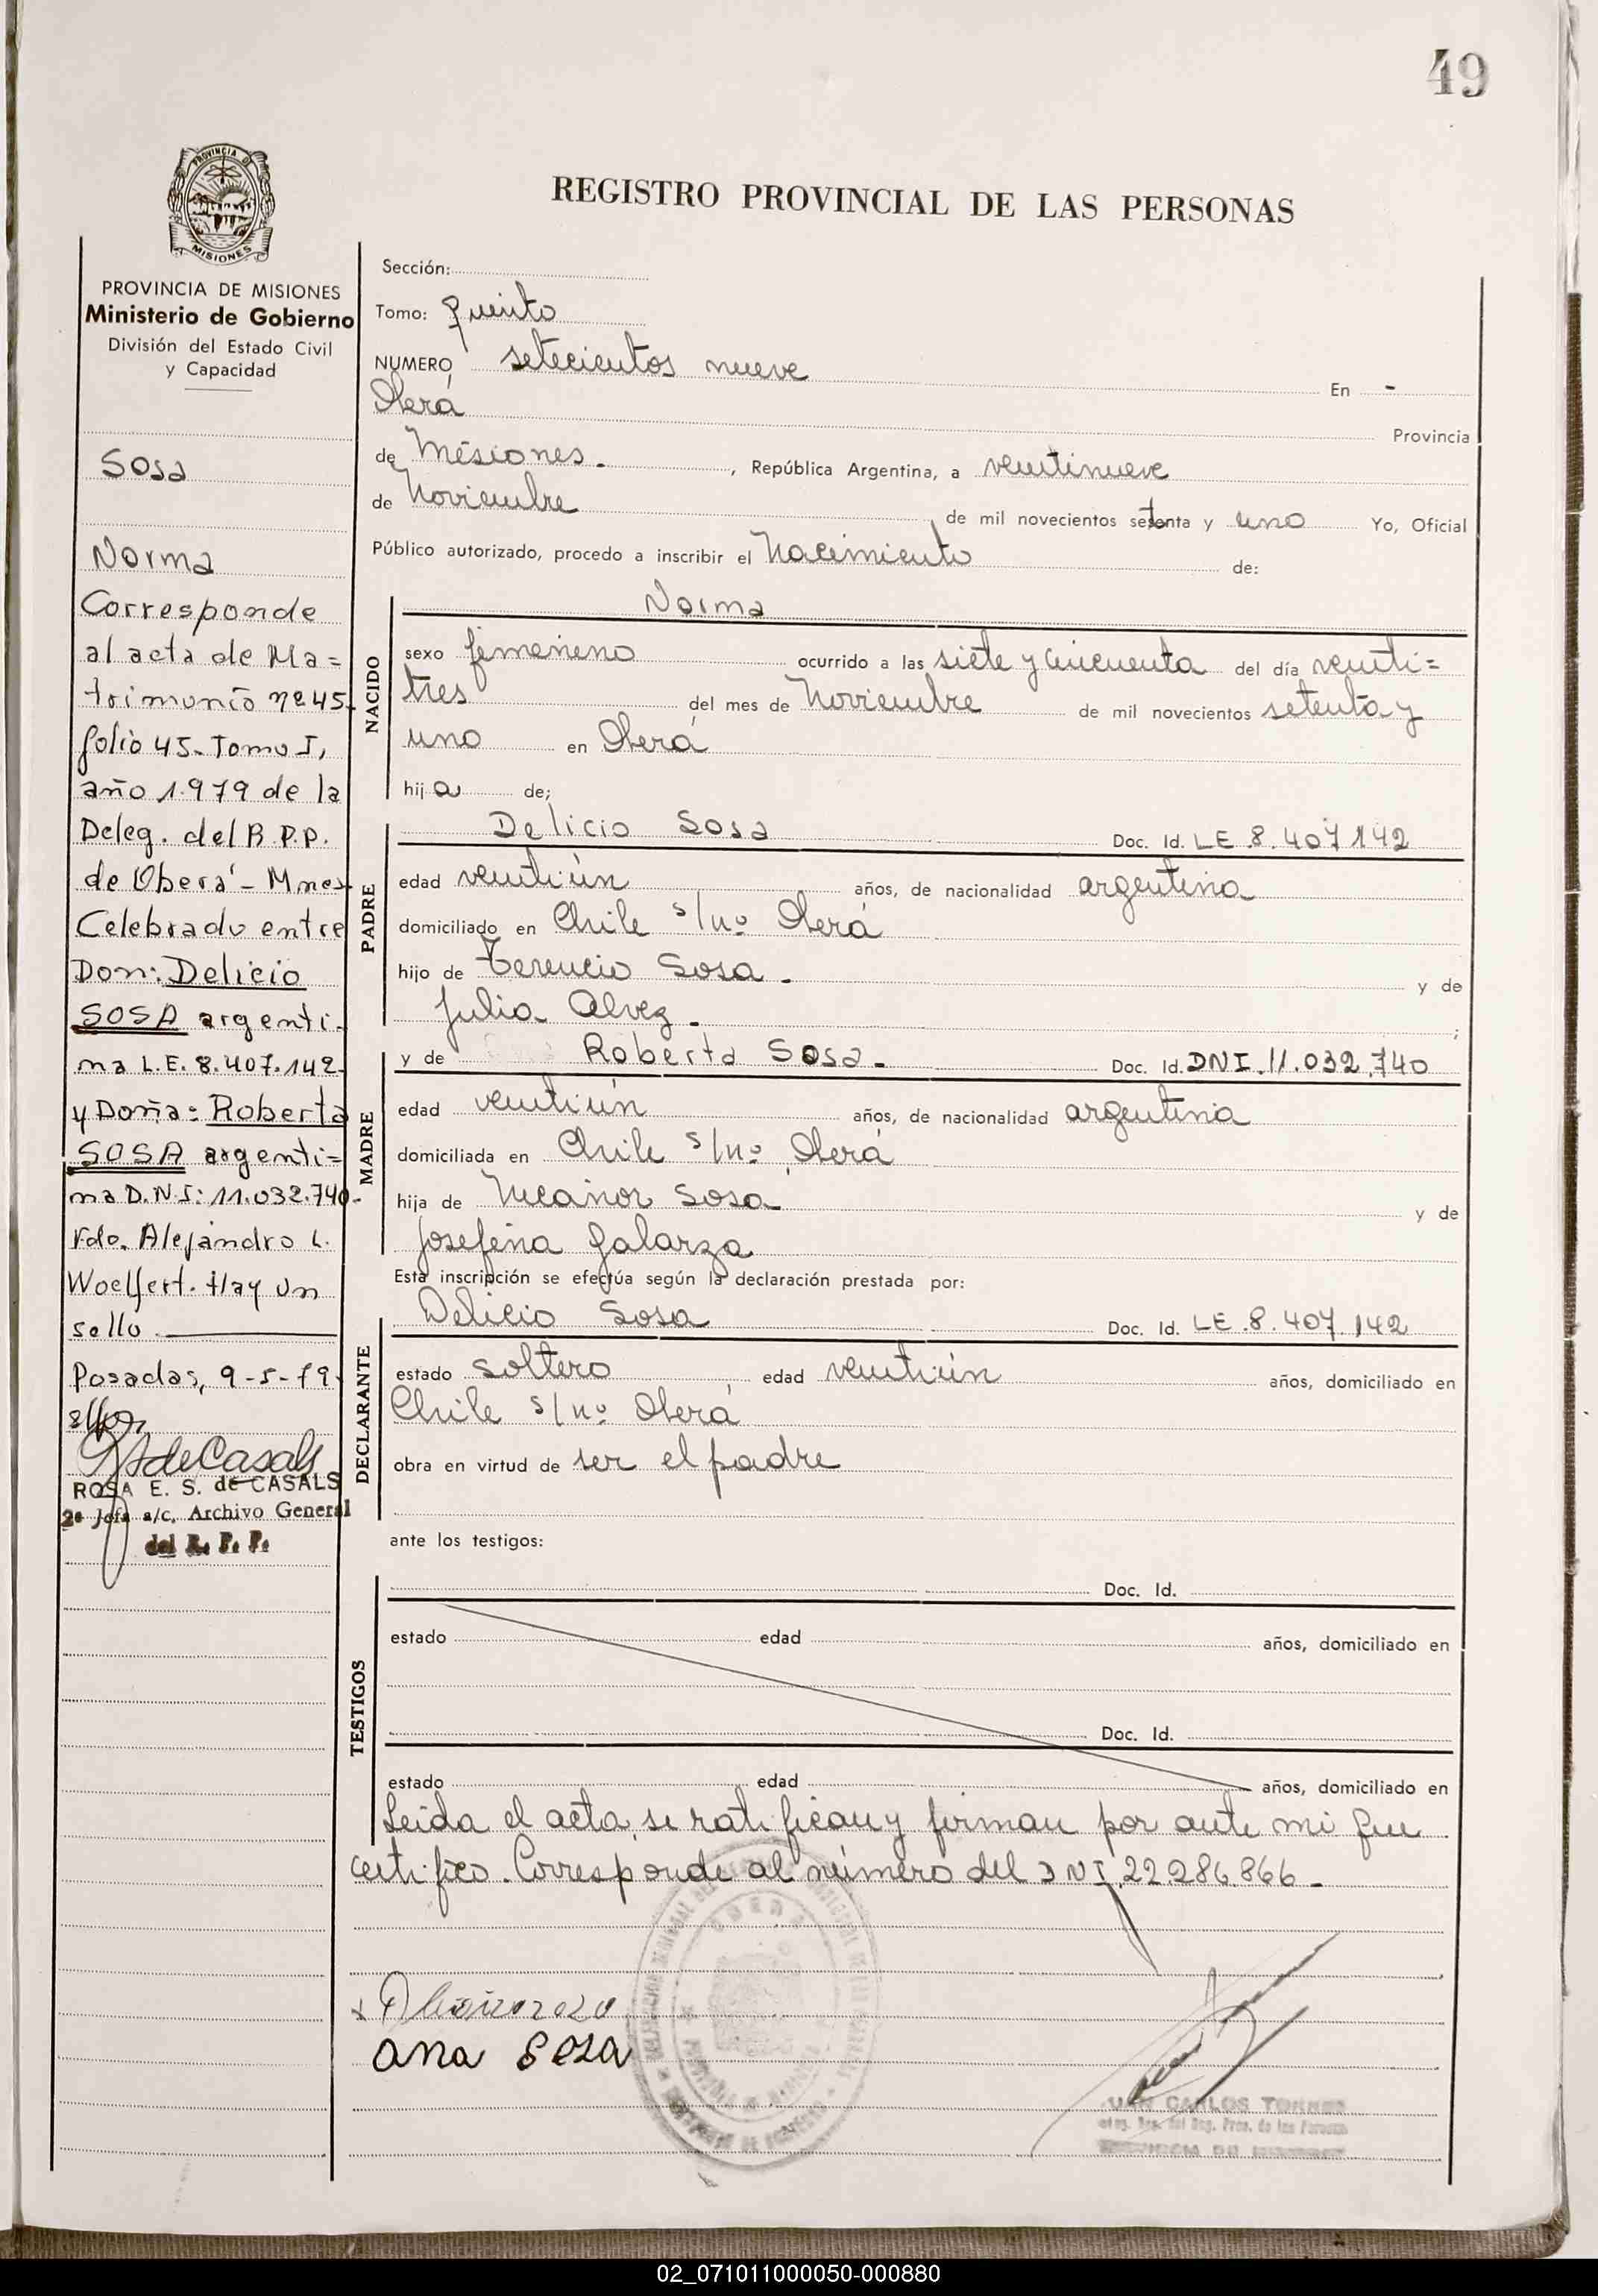 49
PROVINCIA DE MISIONES
REGISTRO PROVINCIAL DE LAS PERSONAS
PROVINCIA DE MISIONES
Ministerio de Gobierno
División del Estado Civil
y Capacidad
Sosa
Norma
Corresponde
al acta de Ma=
trimonio nº 45.
folio 45. Tomo I,
año 1.979 de la
Deleg. del R.P.P.
de Oberá - Mnes
Celebrado entre
Don: Delicio
SOSA argenti-
na L.E. 8.407.142
y Doña: Roberta
SOSA argenti=
na D.N.I: 11.032.740.
Fdo. Alejandro L.
Woelfert. Hay un
sello.
Posadas, 9-5-79.
ROSA E. S. de CASALS
2º Jefa a/c. Archivo General
del R. P. P.
Sección:
Tomo: quinto
NUMERO setecientos nueve En -
Oberá Provincia
de Misiones. , República Argentina, a veintinueve
de Noviembre de mil novecientos setenta y uno Yo, Oficial
Público autorizado, procedo a inscribir el Nacimiento de:
NACIDO
Norma
sexo femenino ocurrido a las siete y cincuenta del día veinti=
tres del mes de Noviembre de mil novecientos setenta y
uno en Oberá
hija de;
PADRE
Delicio Sosa Doc. Id. LE 8.407.142
edad veintiún años, de nacionalidad argentina
domiciliado en Chile s/nº Oberá
hijo de Terencio Sosa. y de
Julia Alvez. ;
MADRE
y de Roberta Sosa. Doc. Id. DNI. 11.032.740
edad veintiún años, de nacionalidad argentina
domiciliada en Chile s/nº Oberá
hija de Nicanor Sosa y de
Josefina Galarza
Esta inscripción se efectúa según la declaración prestada por:
DECLARANTE
Delicio Sosa Doc. Id. LE 8.407.142
estado soltero, edad veintiún años, domiciliado en
Chile s/nº Oberá
obra en virtud de ser el padre
ante los testigos:
TESTIGOS
Doc. Id.
estado edad años, domiciliado en
Doc. Id.
estado edad años, domiciliado en
Leida el acta, se ratifican y firman por ante mi que
certifico. Corresponde al número del DNI. 22.286.866.
ana Sosa
JUAN CARLOS TORRES
02_071011000050-000880